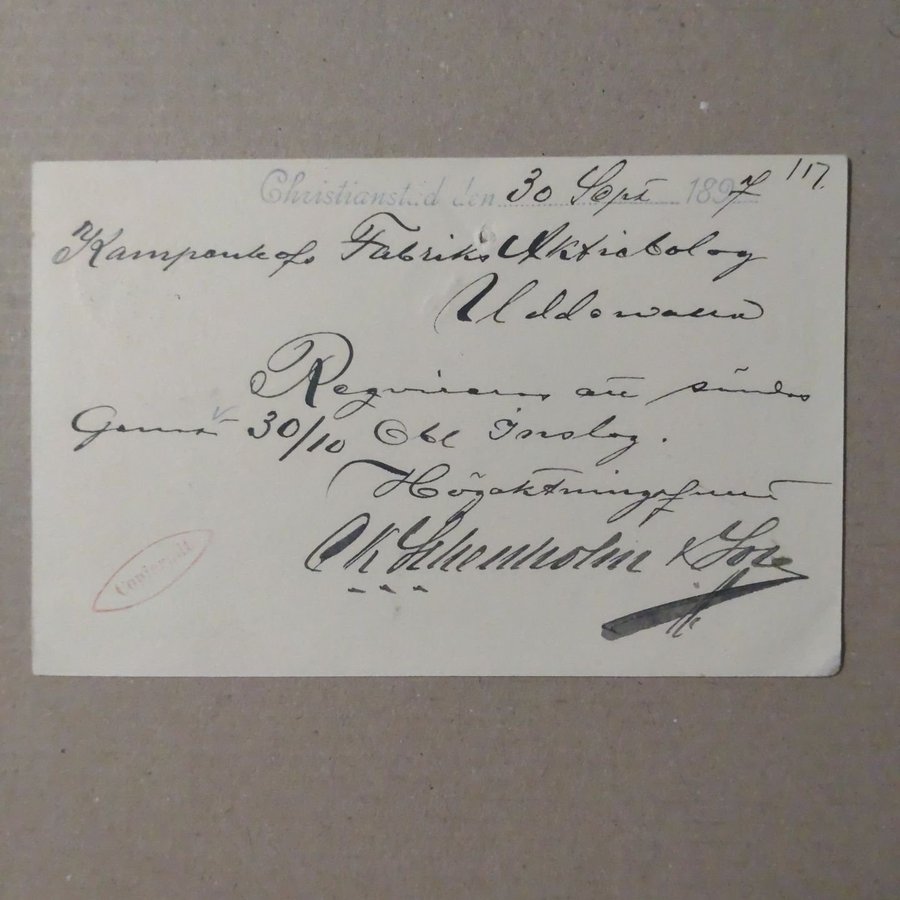 Christianstad den 30 Sept 1897 117.
Kampenhofs Fabriks Aktiebolag
Uddewalla
Requireras att sändas
Genast 30/10 Obl Inslag.
Högaktningsfullt
& Son